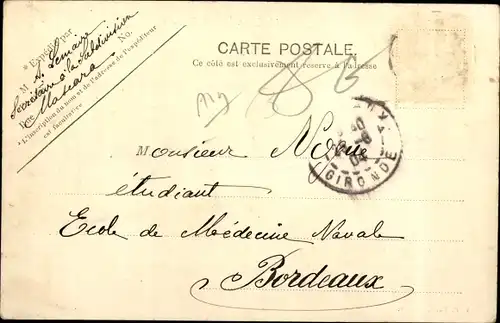 * Expédié par
M. A. Lemaire
Secrétaire à la Subdivision
Rue No.
Mascara
* L'inscription du nom et de l'adresse de l'expéditeur
est facultative
CARTE POSTALE.
Ce côté est exclusivement réservé à l'adresse
GIRONDE
Monsieur
étudiant
Ecole de Médecine Navale
Bordeaux